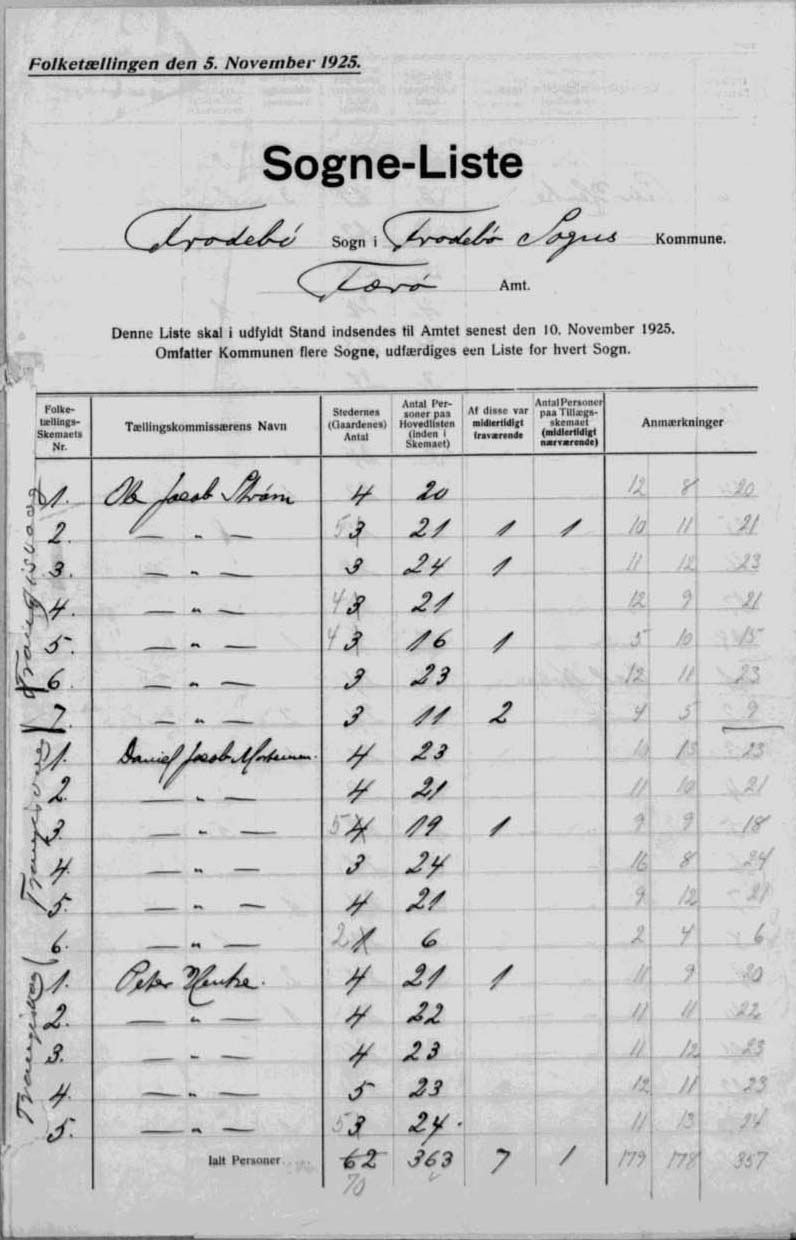 Folketællingen den 5. November 1925.
Sogne-Liste
Frodebö Sogn i Frodebö Sogns Kommune.
Færö Amt.
Denne Liste skal i udfyldt Stand indsendes til Amtet senest den 10. November 1925.
Omfatter Kommunen flere Sogne, udfærdiges een Liste for hvert Sogn.
Folketællings-Skemaets Nr. Tællingskommissærens Navn Stedernes (Gaardenes) Antal Antal Personer paa Hovedlisten (inden i Skemaet) Af disse var midlertidigt fraværende Antal Personer paa Tillægsskemaet (midlertidigt nærværende) Anmærkninger
1. Ole Jacob Strøm 4 20 12 8 20
2. — „ — 5 3 21 1 1 10 11 21
3. — „ — 3 24 1 11 12 23
4. — „ — 4 3 21 12 9 21
5. — „ — 4 3 16 1 5 10 15
6. — „ — 3 23 12 11 23
7. — „ — 3 11 2 4 5 9
1. Daniel Jacob Mortensen. 4 23 10 13 23
2. — „ — 4 21 11 10 21
3. — „ — 5 4 19 1 9 9 18
4. — „ — 3 24 16 8 24
5. — „ — 4 21 9 12 21
6. — „ — 2 1 6 2 4 6
1. Peter Henke. 4 21 1 11 9 20
2. — „ — 4 22 11 11 22
3. — „ — 4 23 11 12 23
4. — „ — 5 23 12 11 23
5. — „ — 5 3 24. 11 13 24
Ialt Personer 62 363 7 1 179 178 357
70